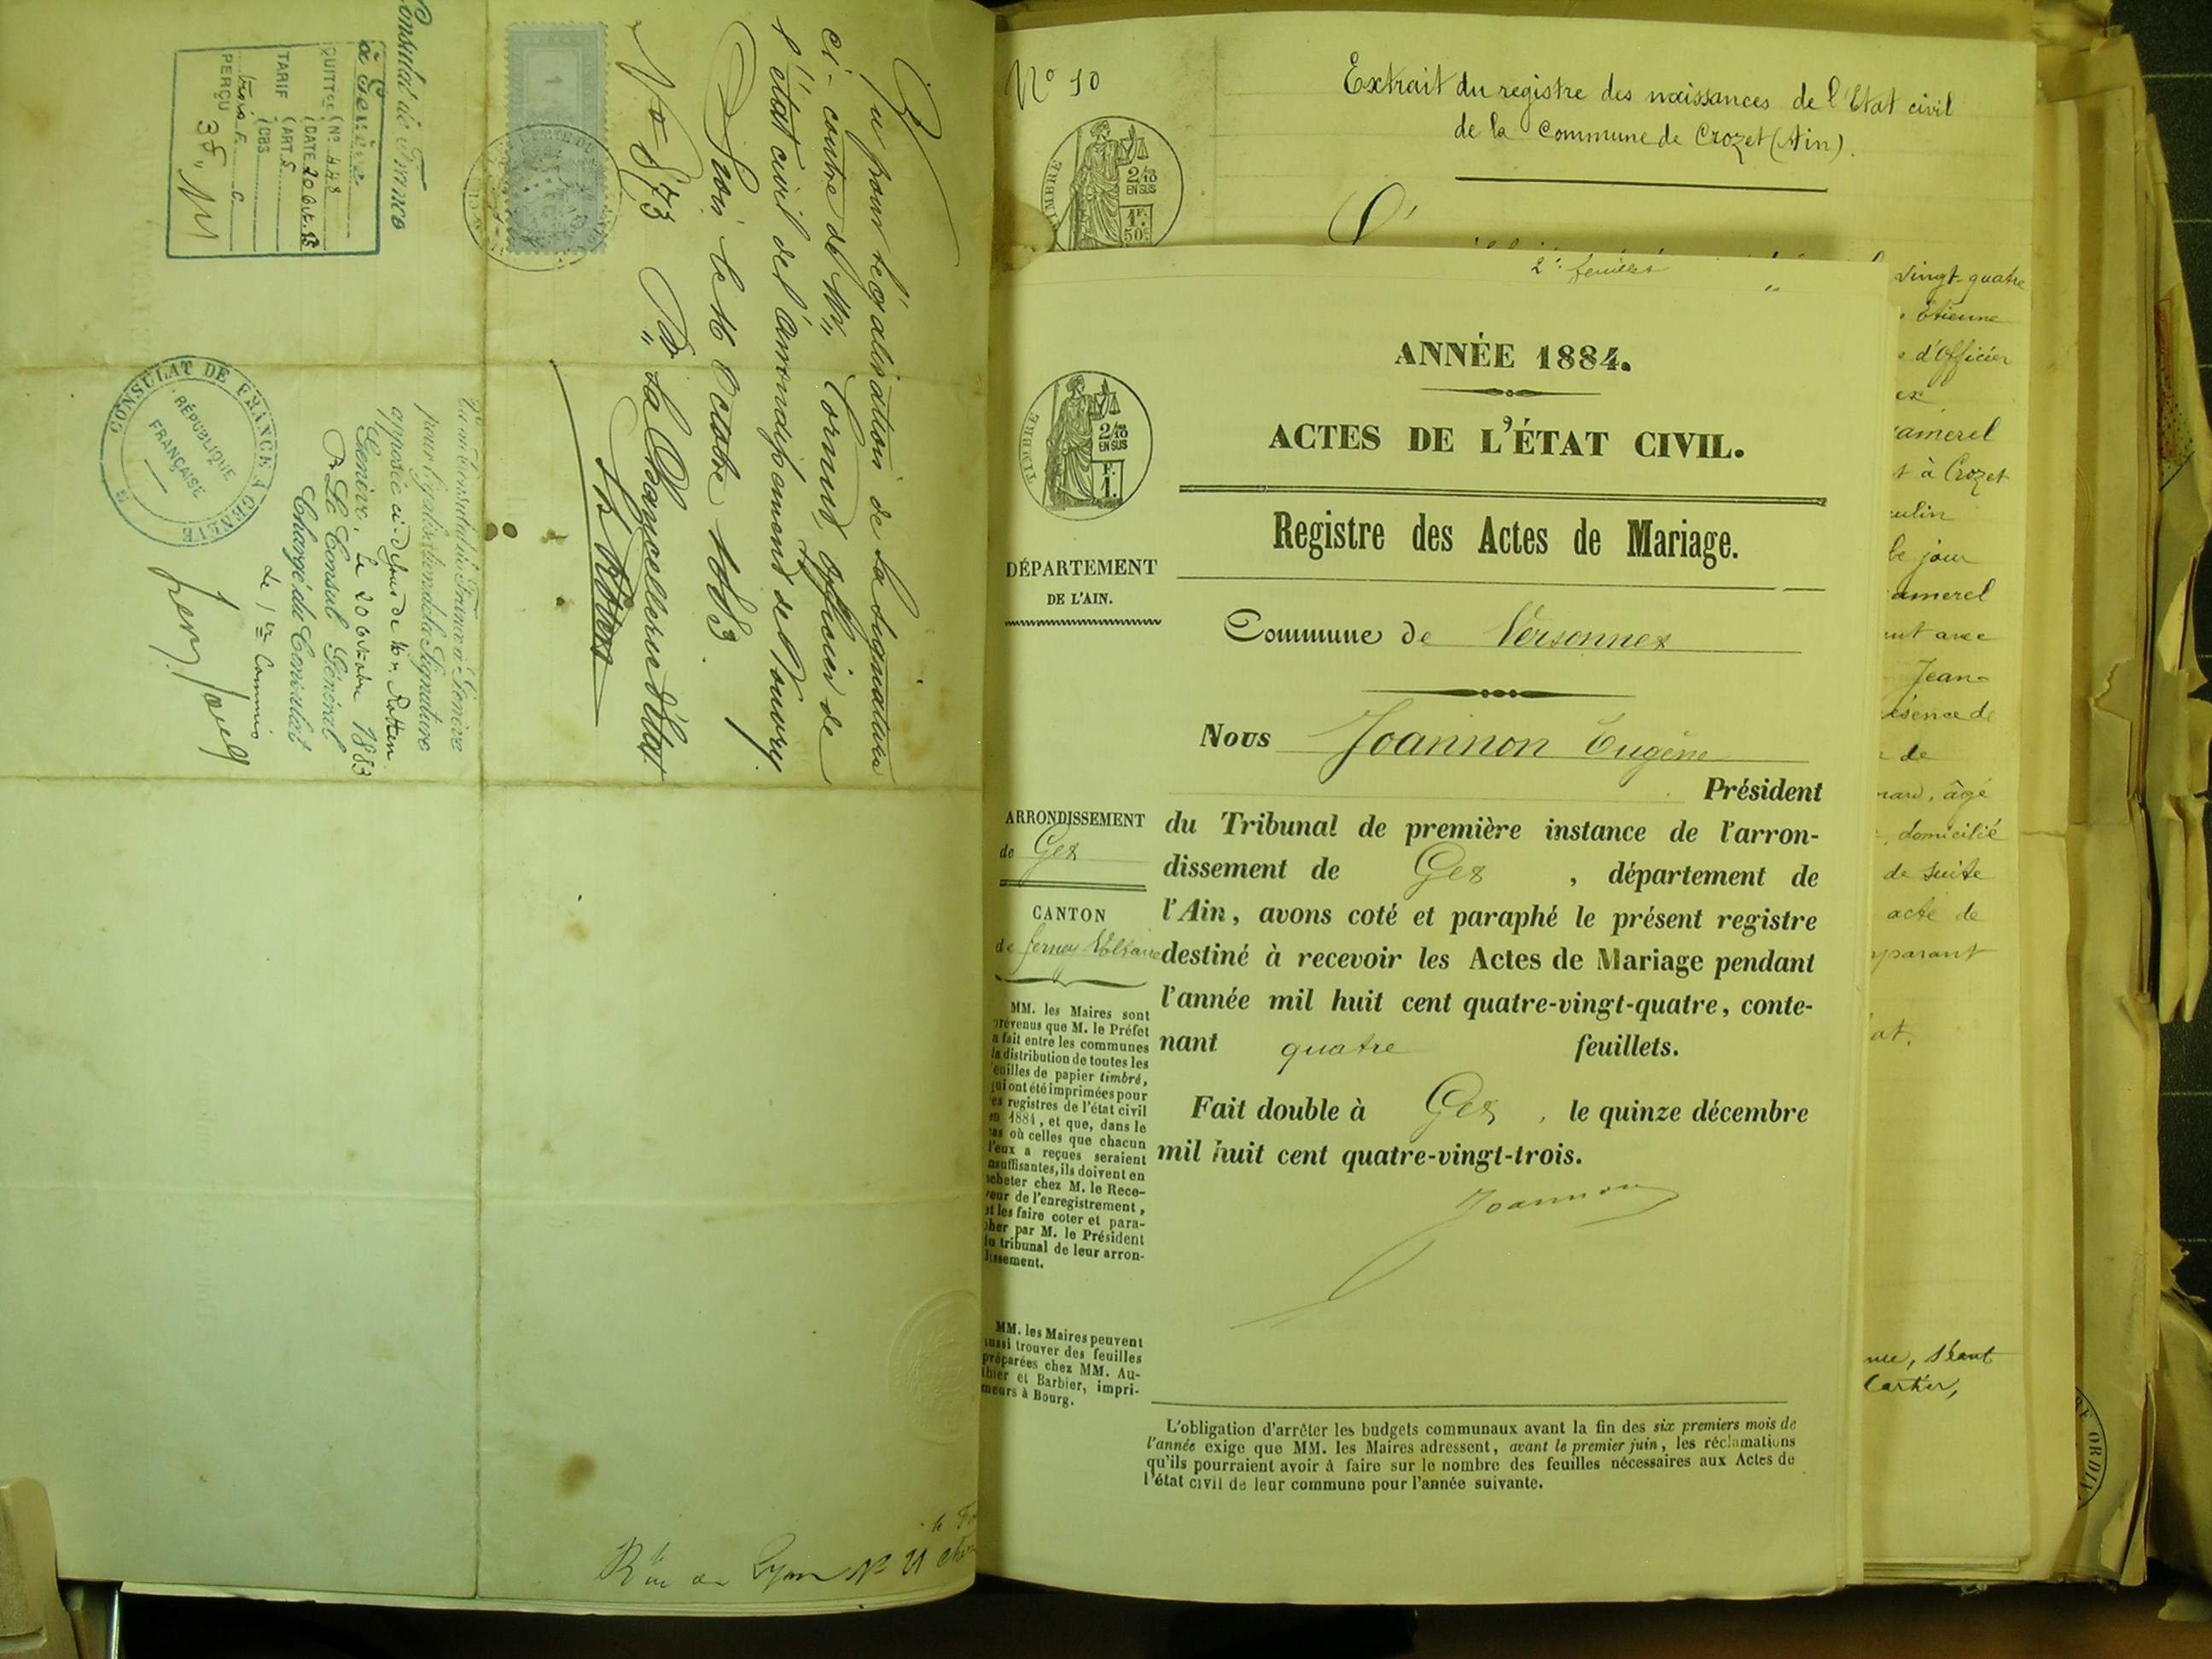 Consulat de France
à Genève
QUITTCE (No 448
(DATE 20 Oct. 83
TARIF (ART 5
(OBS
trois F. C.
PERÇU 3F,,
1
Vu pour légalisation de la signature
ci-contre de Mr, Cornut, officier de
l'état civil de l'arrondissement de Vouvry
Sion le 16 Octobre 1883.
No 873 Pr La Chancellerie d'État
Vu au Consulat de France à Genève
pour légalisation de la Signature
apposée ci-dessus de Mr. Rotten
Genève, le 20 octobre 1883
P. Le Consul Général
Chargé du Consulat
Le 1er Commis
CONSULAT DE FRANCE A GENÈVE
RÉPUBLIQUE
FRANÇAISE
Rue de Lyon No 21
No 10
Extrait du registre des naissances de l'Etat civil
de la Commune de Crozet (Ain).
TIMBRE
2/10
EN SUS
1F.
50c
L'
vingt-quatre
Étienne
d'Officier
ex
amerel
t à Crozet
culin
le jour
amerel
ant avec
Jean-
ésence de
de
nard, âgé
, domicilié
de suite
acte de
mparant
at.
nue, séant
Cartier,
2e feuillet
ANNÉE 1884.
ACTES DE L'ÉTAT CIVIL.
Registre des Actes de Mariage.
TIMBRE
2/10
EN SUS
F.
1.
DÉPARTEMENT
DE L'AIN.
Commune de Versonnex
Nous Joannon Eugène
Président
ARRONDISSEMENT
de Gex
CANTON
de Ferney Voltaire
du Tribunal de première instance de l'arron-
dissement de Gex , département de
l'Ain, avons coté et paraphé le présent registre
destiné à recevoir les Actes de Mariage pendant
l'année mil huit cent quatre-vingt-quatre, conte-
nant quatre feuillets.
Fait double à Gex , le quinze décembre
mil huit cent quatre-vingt-trois.
Joannon
MM. les Maires sont
prévenus que M. le Préfet
a fait entre les communes
la distribution de toutes les
feuilles de papier timbré,
qui ont été imprimées pour
les registres de l'état civil
en 1884, et que, dans le
cas où celles que chacun
d'eux a reçues seraient
insuffisantes, ils doivent en
acheter chez M. le Rece-
veur de l'enregistrement,
et les faire coter et para-
pher par M. le Président
du tribunal de leur arron-
dissement.
MM. les Maires peuvent
aussi trouver des feuilles
préparées chez MM. Au-
thier et Barbier, impri-
meurs à Bourg.
L'obligation d'arrêter les budgets communaux avant la fin des six premiers mois de
l'année exige que MM. les Maires adressent, avant le premier juin, les réclamations
qu'ils pourraient avoir à faire sur le nombre des feuilles nécessaires aux Actes de
l'état civil de leur commune pour l'année suivante.